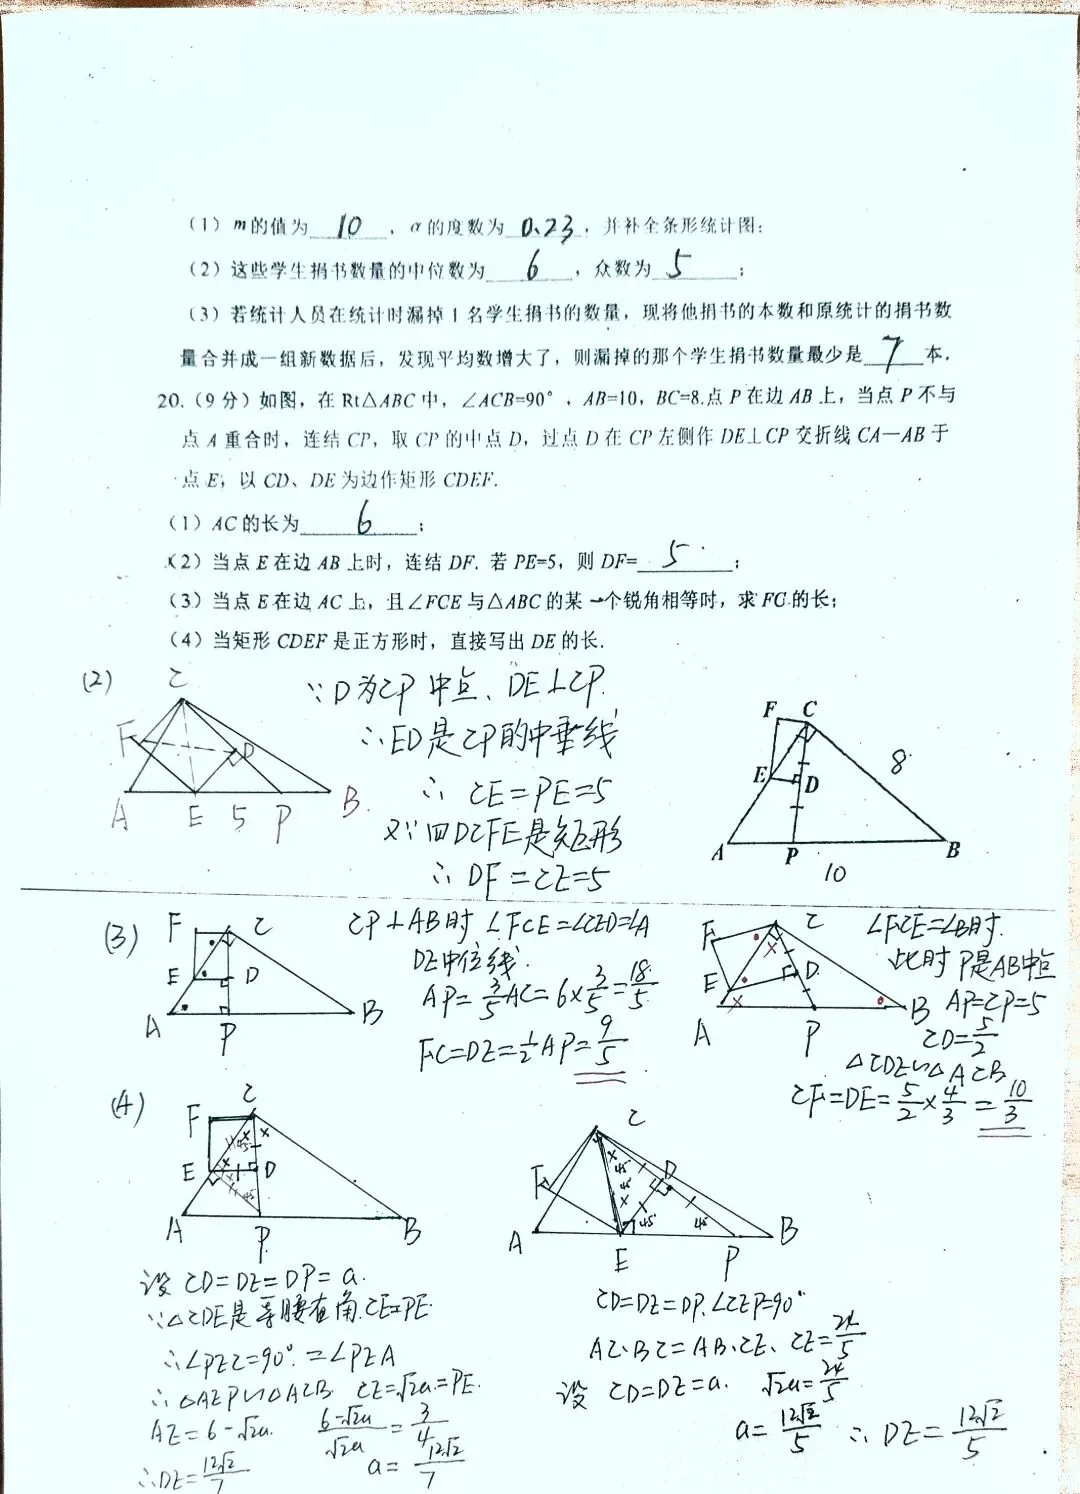 (1) m的值为 10 ，α的度数为 0.23，并补全条形统计图；
(2) 这些学生捐书数量的中位数为 6 ，众数为 5 ；
(3) 若统计人员在统计时漏掉1名学生捐书的数量，现将他捐书的本数和原统计的捐书数
量合并成一组新数据后，发现平均数增大了，则漏掉的那个学生捐书数量最少是 7 本．
20.（9分）如图，在Rt△ABC中，∠ACB=90°，AB=10，BC=8.点P在边AB上，当点P不与
点A重合时，连结CP，取CP的中点D，过点D在CP左侧作DE⊥CP交折线CA—AB于
点E，以CD、DE为边作矩形CDEF.
(1) AC的长为 6 ；
(2) 当点E在边AB上时，连结DF. 若PE=5，则DF= 5 ；
(3) 当点E在边AC上，且∠FCE与△ABC的某一个锐角相等时，求FC的长；
(4) 当矩形CDEF是正方形时，直接写出DE的长．
(2)
C
F
D
A E 5 P B
∵D为CP中点、DE⊥CP.
∴ED是CP的中垂线
∴ CE=PE=5
又∵四DCFE是矩形
∴ DF=CE=5
F C
8
E D
A P B
10
(3)
F C
E D
A P B
CP⊥AB时 ∠FCE=∠CED=∠A
DE中位线.
AP=3/5AC=6×3/5=18/5
FC=DE=1/2AP=9/5
F C
E D
A P B
∠FCE=∠B时.
此时P是AB中点
AP=CP=5
CD=5/2
△CDE∽△ACB
CF=DE=5/2×4/3=10/3
(4)
F C
45°
E D
A P B
设 CD=DE=DP=a.
∵△CDE是等腰直角.CE=PE.
∴∠PEC=90°=∠PEA
∴△AEP∽△ACB CE=√2a=PE.
AE=6-√2a. (6-√2a)/(√2a)=3/4
∴DE=12√2/7 a=12√2/7
C
F D
45°
45°
45°
A E P B
CD=DE=DP.∠CEP=90°
AC·BC=AB·CE、CE=24/5
设 CD=DE=a. √2a=24/5
a=12√2/5 ∴DE=12√2/5